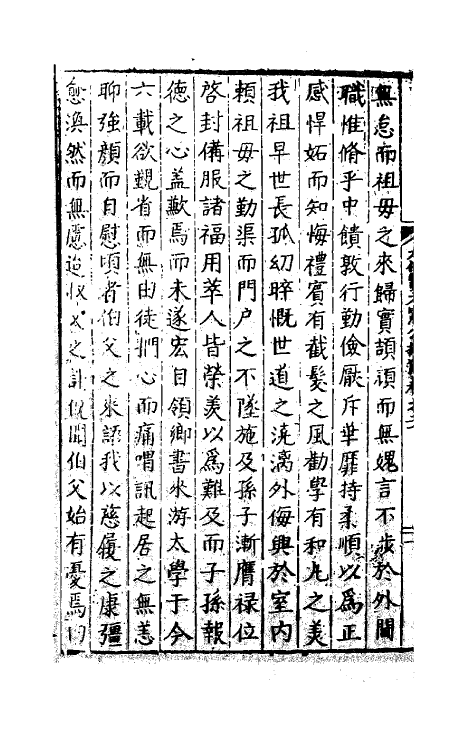 無怠而祖母之來歸實頡頏而無媿言不步於外閫
職惟脩乎中饋敦行勤儉厭斥華靡持柔順以爲正
感悍妬而知悔禮賓有截髮之風勸學有和丸之美
我祖早世長孤幼睟慨世道之澆漓外侮興於室内
頼祖母之勤渠而門户之不墜施及孫子漸膺禄位
啓封備服諸福用萃人皆榮羡以爲難及而子孫報
德之心盖歉焉而未遂宏自領鄉書來游太學于今
六載欲覲省而無由徒捫心而痛喟訊起居之無恙
聊強顔而自慰頃者伯父之來語我以慈履之康彊
愈渙然而無慮迨 之計俄聞伯父始有憂焉